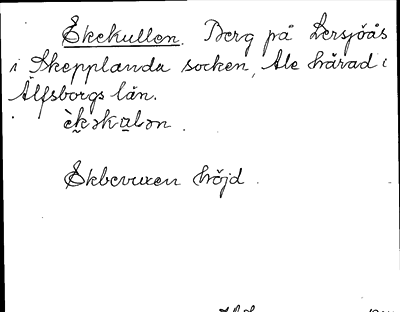 Ekekullen. Berg på Lersjöås
i Skepplanda socken, Ale härad i
Älfsborgs län.
Ekbevuxen höjd.